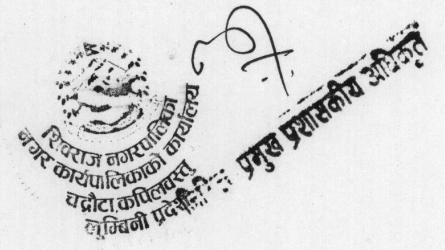 शिवराज नगरपालिका
नगर कार्यपालिकाको कार्यालय
चन्द्रौटा, कपिलवस्तु
लुम्बिनी प्रदेश
प्रमुख प्रशासकीय अधिकृत